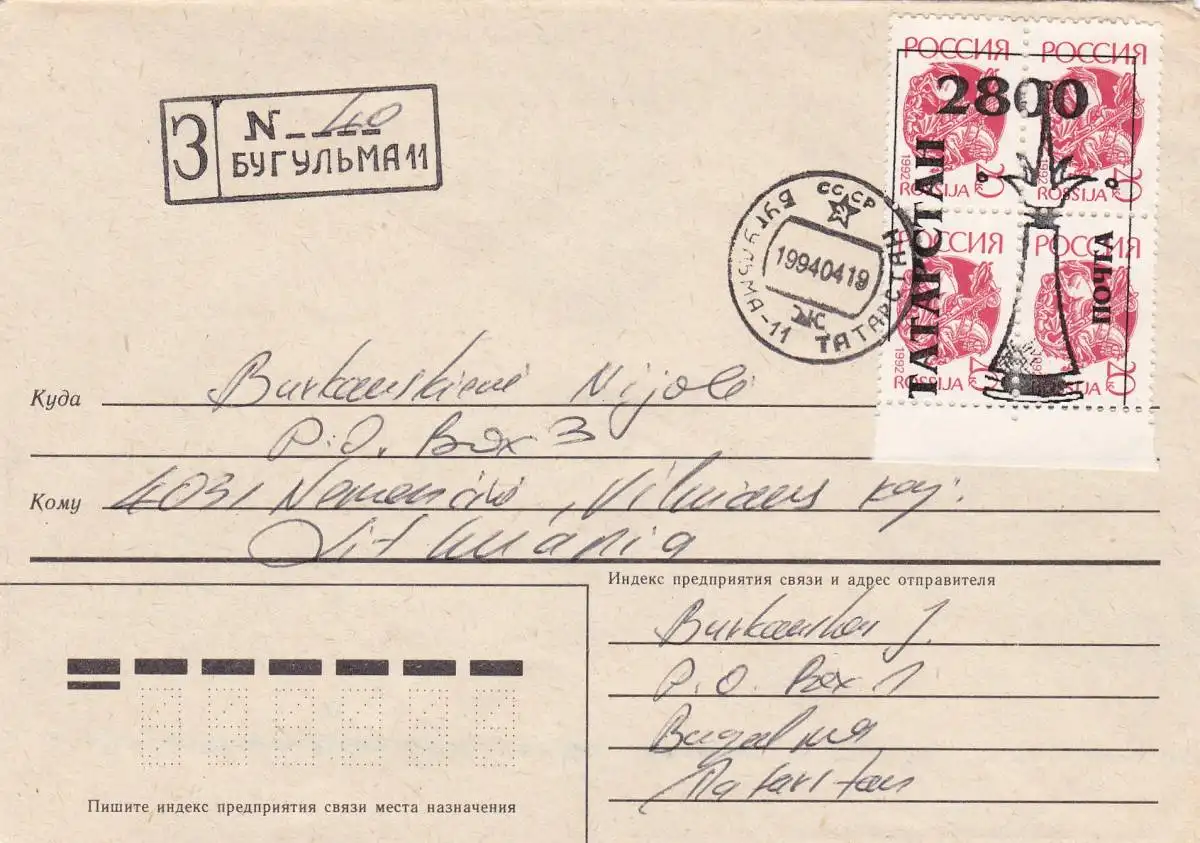 З
N 40
БУГУЛЬМА 11
СССР
БУГУЛЬМА-11 ТАТАРСТАН
19940419
Ж
РОССИЯ РОССИЯ
2800
1992 20к 1992 20к
ROSSIJA ROSSIJA
ТАТАРСТАН
ПОЧТА
РОССИЯ РОССИЯ
1992 20к 20к
ROSSIJA
Куда Burkauskienė Nijolė
P.O. Box 3
Кому 4031 Nemenčinė, Vilniaus raj.
Lithuania
Индекс предприятия связи и адрес отправителя
Burkauskas J.
P.O. Box 1
Bugulma
Tatarstan
Пишите индекс предприятия связи места назначения